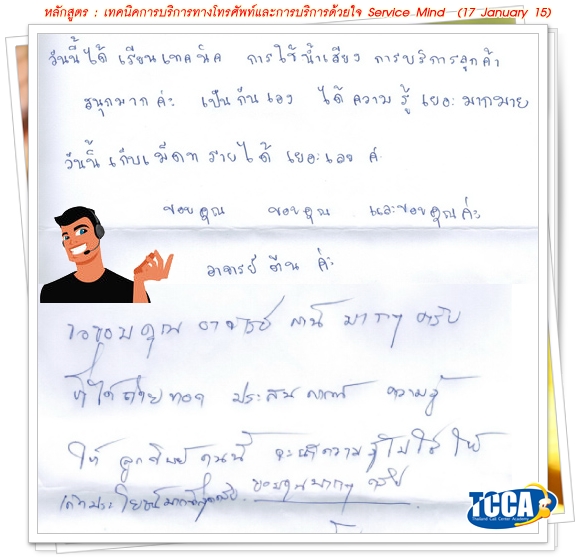 หลักสูตร : เทคนิคการบริการทางโทรศัพท์และการบริการด้วยใจ Service Mind (17 January 15)
วันนี้ได้ เรียนเทคนิค การใช้น้ำเสียง การบริการลูกค้า
สนุกมาก ค่ะ เป็นกันเอง ได้ความรู้ เยอะมากมาย
วันนี้ เก็บเม็ดทรายได้ เยอะเลย ค่
ขอบคุณ ขอบคุณ และขอบคุณค่ะ
อาจารย์ ตีน ค่ะ
ขอขอบคุณ อาจารย์ มากๆ ครับ
ที่ได้ถ่ายทอด ประสบการณ์ ความรู้
ให้ ลูกศิษย์คนนี้ จะนำความรู้ไปใช้ ให้
เกิดประโยชน์มากที่สุดครับ. ขอบคุณมากๆ ครับ
TCCA
Thailand Call Center Academy